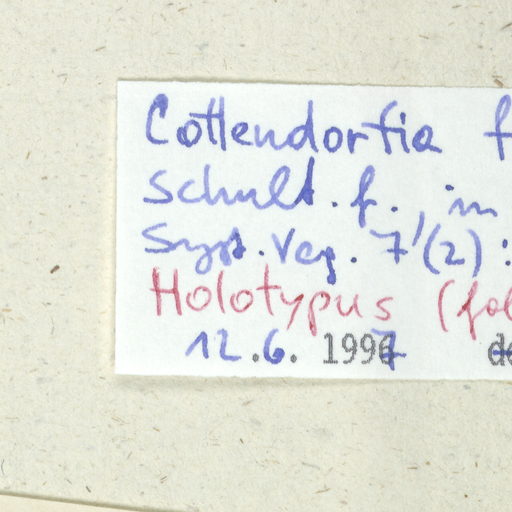 Cottendorfia f
Schult. f., in
Syst. Veg. 7,(2):
Holotypus (fol
12.6. 1997